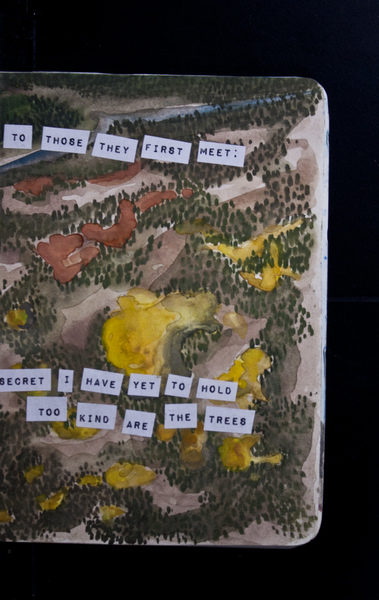 TO THOSE THEY FIRST MEET:
SECRET I HAVE YET TO HOLD
TOO KIND ARE THE TREES